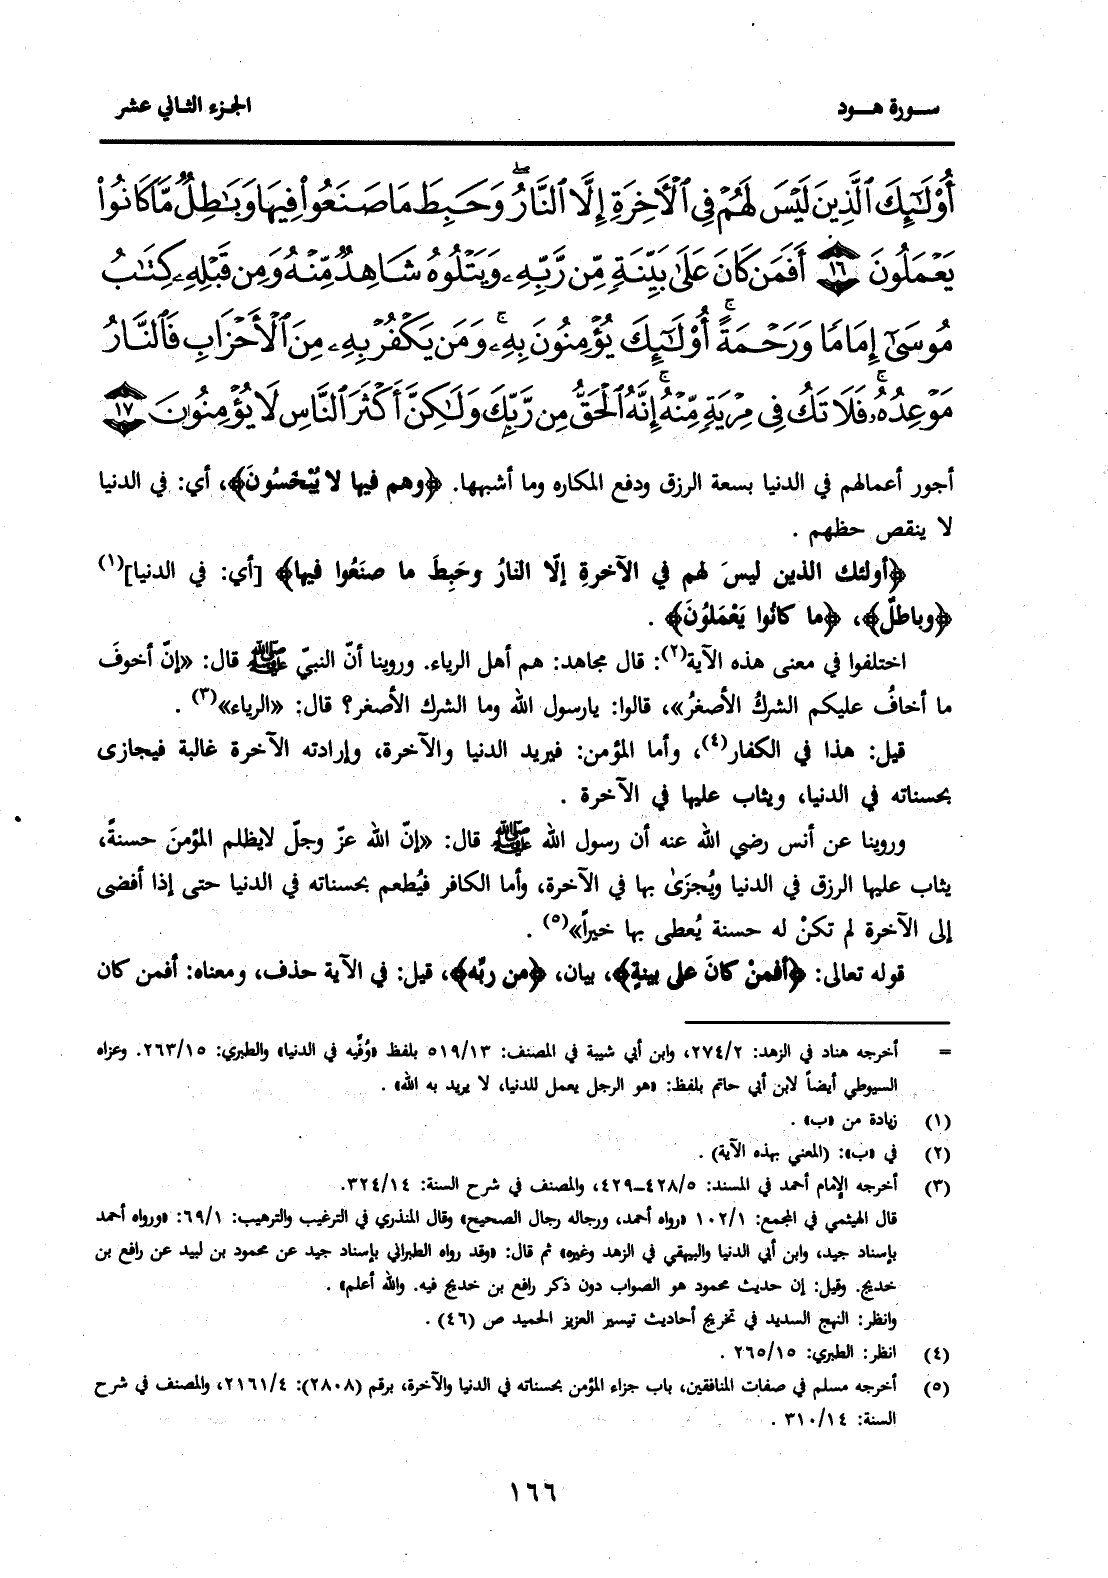 سورة هود
الجزء الثاني عشر
أُوْلَٰٓئِكَ ٱلَّذِينَ لَيْسَ لَهُمْ فِي ٱلْأَخِرَةِ إِلَّا ٱلنَّارُۖ وَحَبِطَ مَا صَنَعُواْ فِيهَا وَبَٰطِلٌ مَّا كَانُواْ
يَعْمَلُونَ ١٦ أَفَمَن كَانَ عَلَىٰ بَيِّنَةٍ مِّن رَّبِّهِۦ وَيَتْلُوهُ شَاهِدٌ مِّنْهُ وَمِن قَبْلِهِۦ كِتَٰبُ
مُوسَىٰٓ إِمَامًا وَرَحْمَةًۚ أُوْلَٰٓئِكَ يُؤْمِنُونَ بِهِۦۚ وَمَن يَكْفُرْ بِهِۦ مِنَ ٱلْأَحْزَابِ فَٱلنَّارُ
مَوْعِدُهُۥۚ فَلَا تَكُ فِي مِرْيَةٍ مِّنْهُۚ إِنَّهُ ٱلْحَقُّ مِن رَّبِّكَ وَلَٰكِنَّ أَكْثَرَ ٱلنَّاسِ لَا يُؤْمِنُونَ ١٧
أجور أعمالهم في الدنيا بسعة الرزق ودفع المكاره وما أشبهها. ﴿وهم فيها لا يُبْخَسُونَ﴾، أي: في الدنيا
لا ينقص حظهم .
﴿أولئك الذين ليسَ لهم في الآخرةِ إلّا النارُ وحَبِطَ ما صنَعُوا فيها﴾ [أي: في الدنيا](١)
﴿وباطلٌ﴾، ﴿ما كانُوا يَعْمَلُوْنَ﴾ .
اختلفوا في معنى هذه الآية(٢): قال مجاهد: هم أهل الرياء. وروينا أنّ النبيّ ﷺ قال: «إنّ أخوفَ
ما أخافُ عليكم الشركُ الأصغرُ»، قالوا: يارسول الله وما الشرك الأصغر؟ قال: «الرياء»(٣) .
قيل: هذا في الكفار(٤)، وأما المؤمن: فيريد الدنيا والآخرة، وإرادته الآخرة غالبة فيجازى
بحسناته في الدنيا، ويثاب عليها في الآخرة .
وروينا عن أنس رضي الله عنه أن رسول الله ﷺ قال: «إنّ الله عزّ وجلّ لايظلم المؤمنَ حسنةً،
يثاب عليها الرزق في الدنيا ويُجزَىٰ بها في الآخرة، وأما الكافر فيُطعم بحسناته في الدنيا حتى إذا أفضى
إلى الآخرة لم تكنْ له حسنة يُعطى بها خيراً»(٥) .
قوله تعالى: ﴿أفمنْ كانَ على بينةٍ﴾، بيان، ﴿من ربِّه﴾، قيل: في الآية حذف، ومعناه: أفمن كان
= أخرجه هناد في الزهد: ٢٧٤/٢، وابن أبي شيبة في المصنف: ٥١٩/١٣ بلفظ «وُفّيه في الدنيا» والطبري: ٢٦٣/١٥. وعزاه
السيوطي أيضاً لابن أبي حاتم بلفظ: «هو الرجل يعمل للدنيا، لا يريد به الله» .
(١) زيادة من «ب» .
(٢) في «ب»: (المعني بهذه الآية) .
(٣) أخرجه الإمام أحمد في المسند: ٤٢٨/٥-٤٢٩، والمصنف في شرح السنة: ٣٢٤/١٤.
قال الهيثمي في المجمع: ١٠٢/١ «رواه أحمد، ورجاله رجال الصحيح» وقال المنذري في الترغيب والترهيب: ٦٩/١: «ورواه أحمد
بإسناد جيد، وابن أبي الدنيا والبيهقي في الزهد وغيره» ثم قال: «وقد رواه الطبراني بإسناد جيد عن محمود بن لبيد عن رافع بن
خديج. وقيل: إن حديث محمود هو الصواب دون ذكر رافع بن خديج فيه. والله أعلم» .
وانظر: النهج السديد في تخريج أحاديث تيسير العزيز الحميد ص (٤٦) .
(٤) انظر: الطبري: ٢٦٥/١٥ .
(٥) أخرجه مسلم في صفات المنافقين، باب جزاء المؤمن بحسناته في الدنيا والآخرة، برقم (٢٨٠٨): ٢١٦١/٤، والمصنف في شرح
السنة: ٣١٠/١٤ .
١٦٦